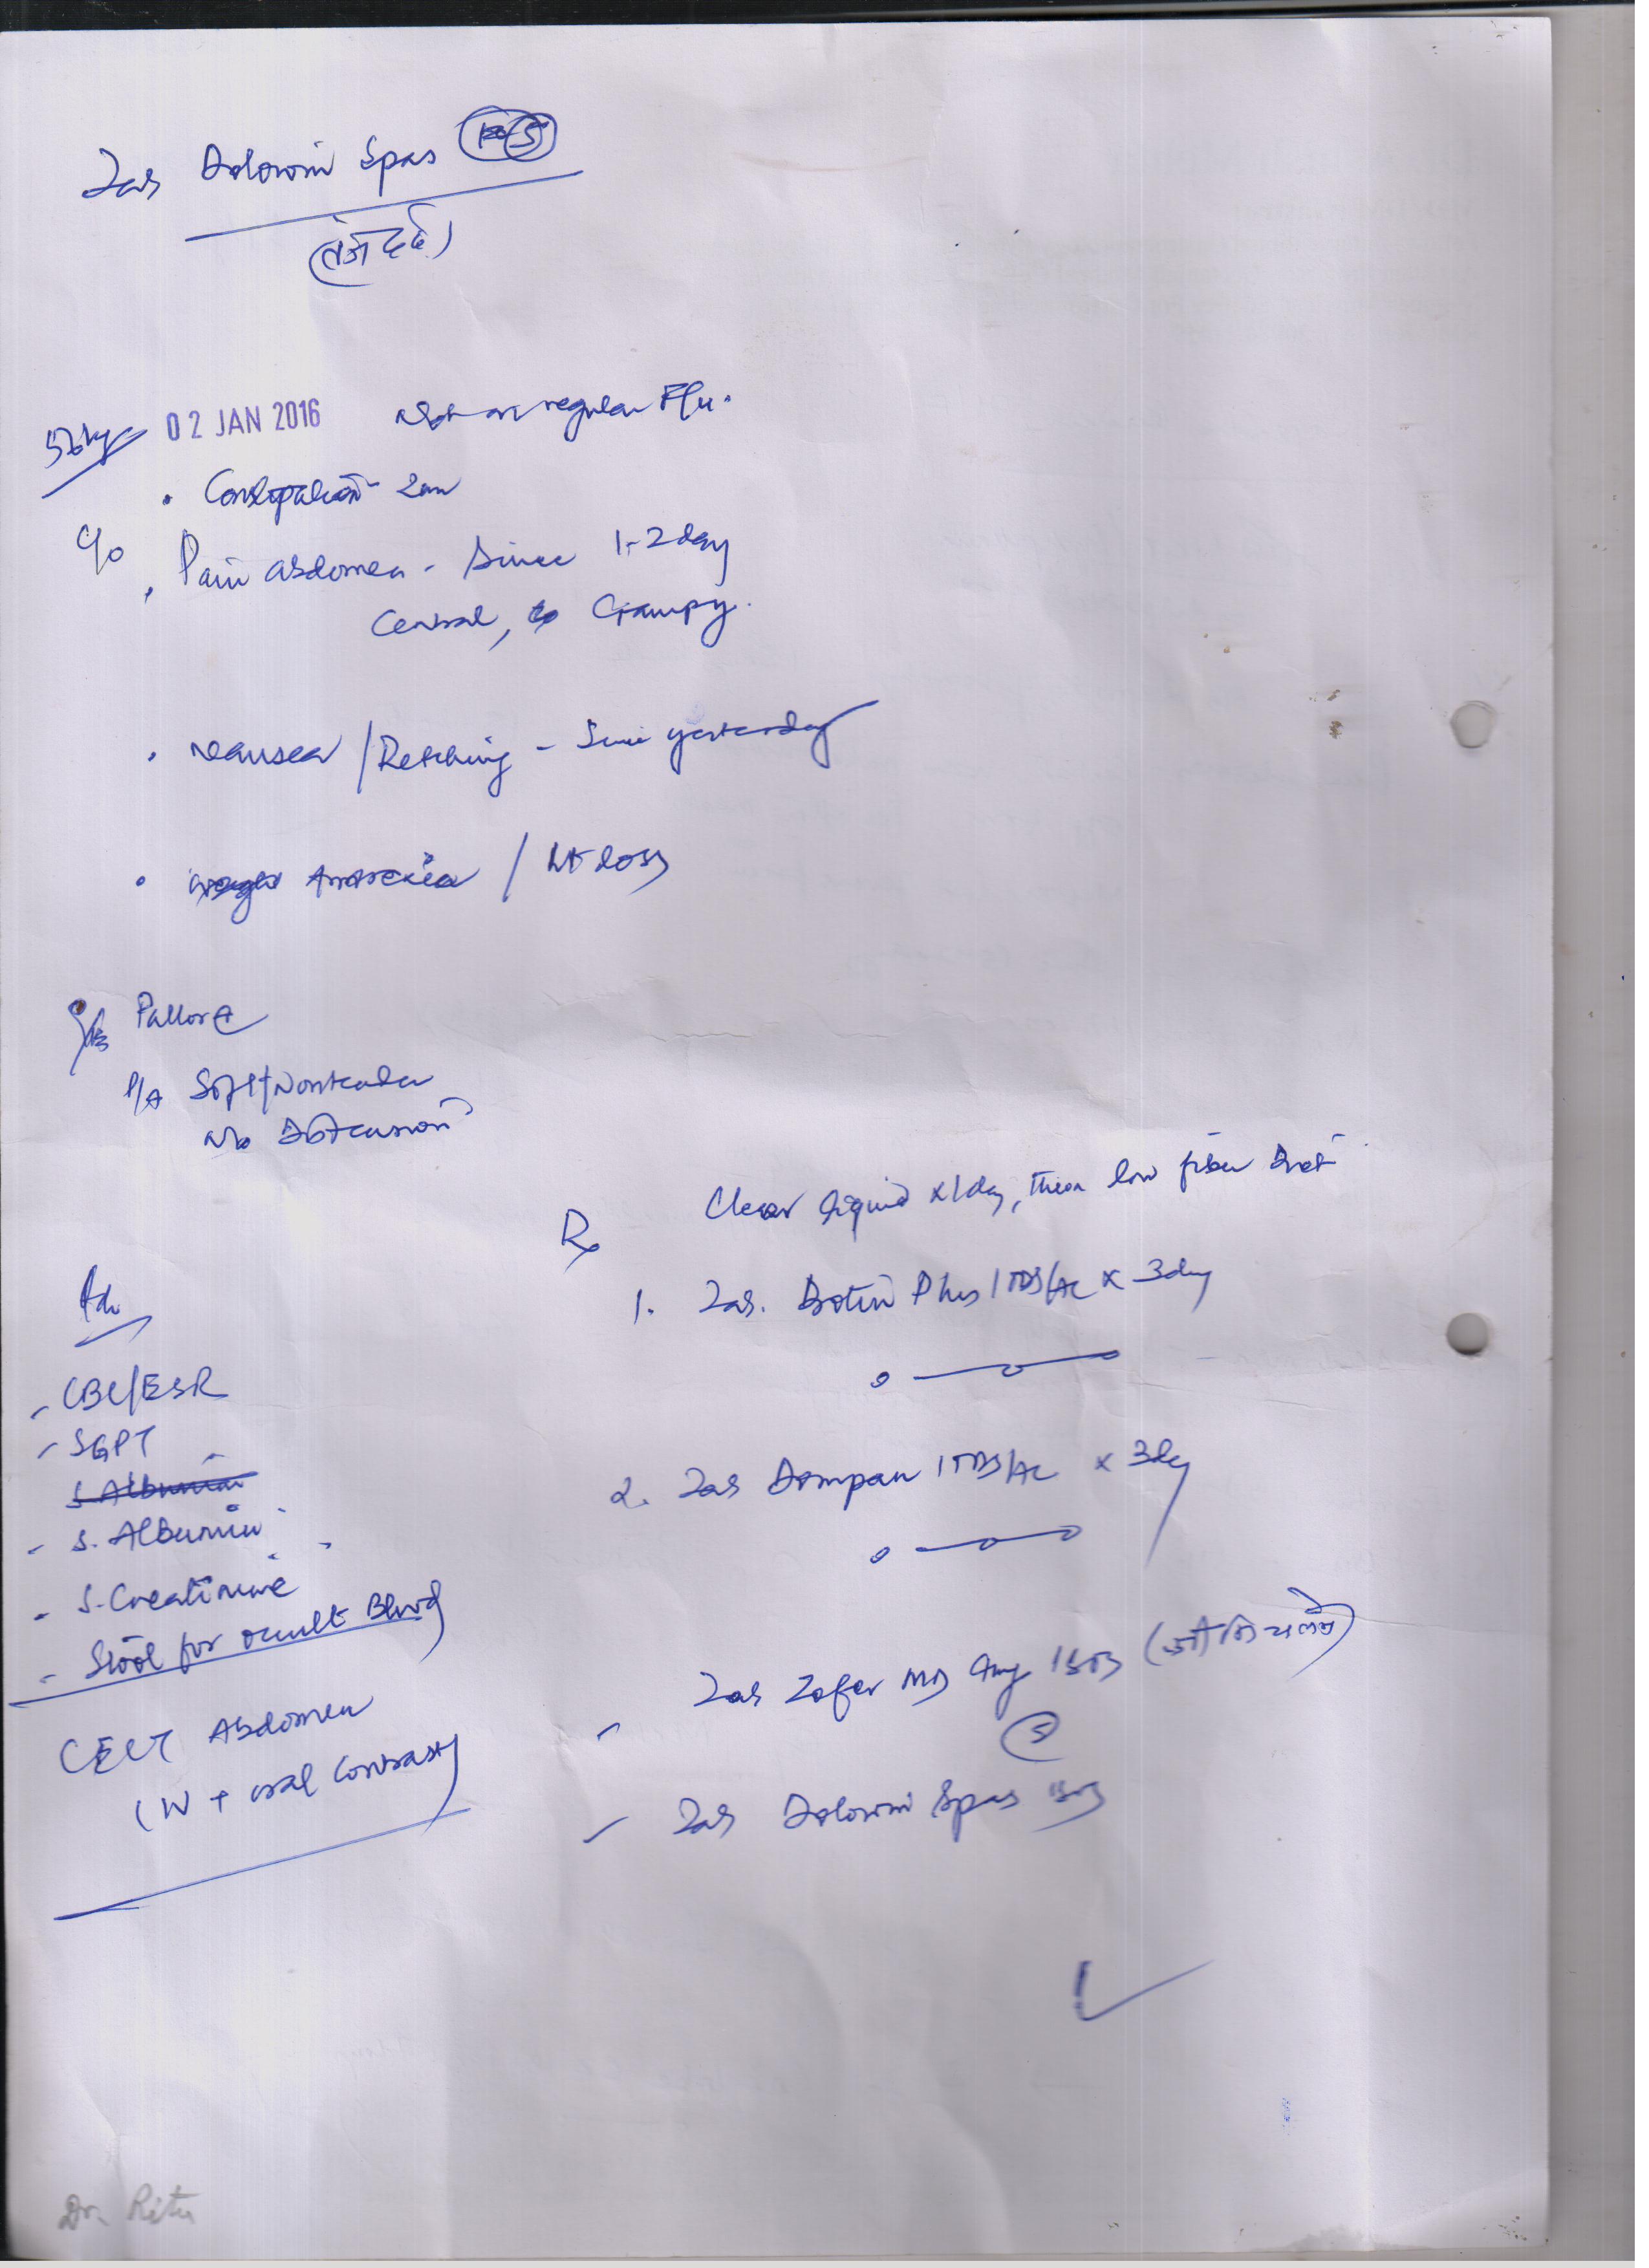 Tab Dolowin Spas (5)
(तेज दर्द)
02 JAN 2016 Not on regular F/u.
56kg
• Constipation
C/o • Pain abdomen - Since 1-2 day
Central, Crampy.
• Nausea / Retching - Since yesterday
• Anorexia / Wt loss
Pallor +
P/A Soft/Nontender
No Distension
Rx Clear liquid x 1day, then low fiber diet
1. Tab. Plus 1 TDS/AC x 3day
Adv
- CBC/ESR
- SGPT
S. Albumin
- S. Albumin
- S. Creatinine
- Stool for occult Blood
CECT Abdomen
(IV + oral Contrast)
2. Tab Dompan 1 TDS/AC x 3day
- Tab Zofer MD 4mg 1 SOS
(5)
- Tab Dolowin Spas SOS
Dr. Ritu